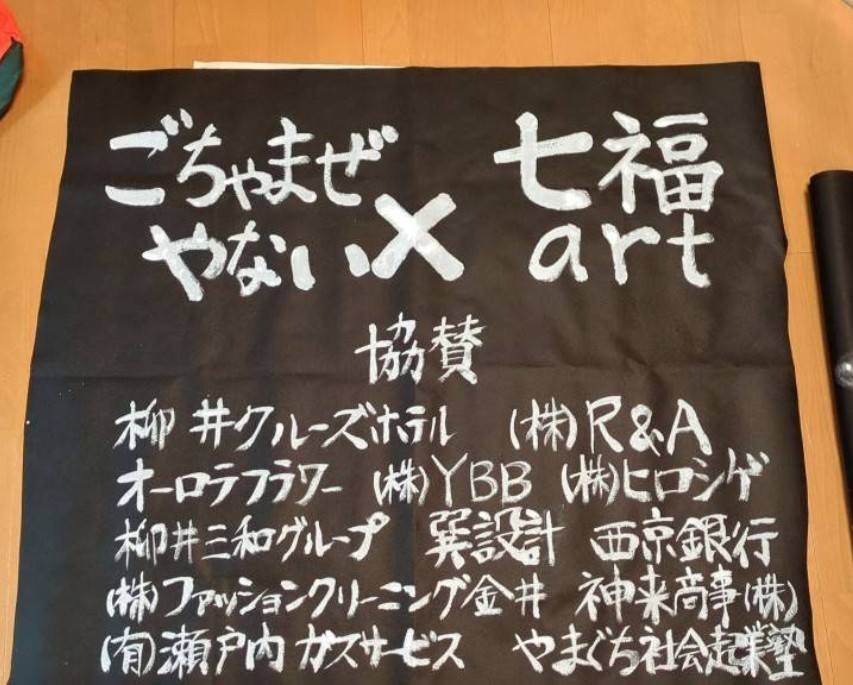 ごちゃまぜ 七福
やない × art
協賛
柳井クルーズホテル (株)R&A
オーロラフラワー (株)YBB (株)ヒロシゲ
柳井三和グループ 巽設計 西京銀行
(株)ファッションクリーニング金井 神来商事(株)
(有)瀬戸内ガスサービス やまぐち社会起業塾